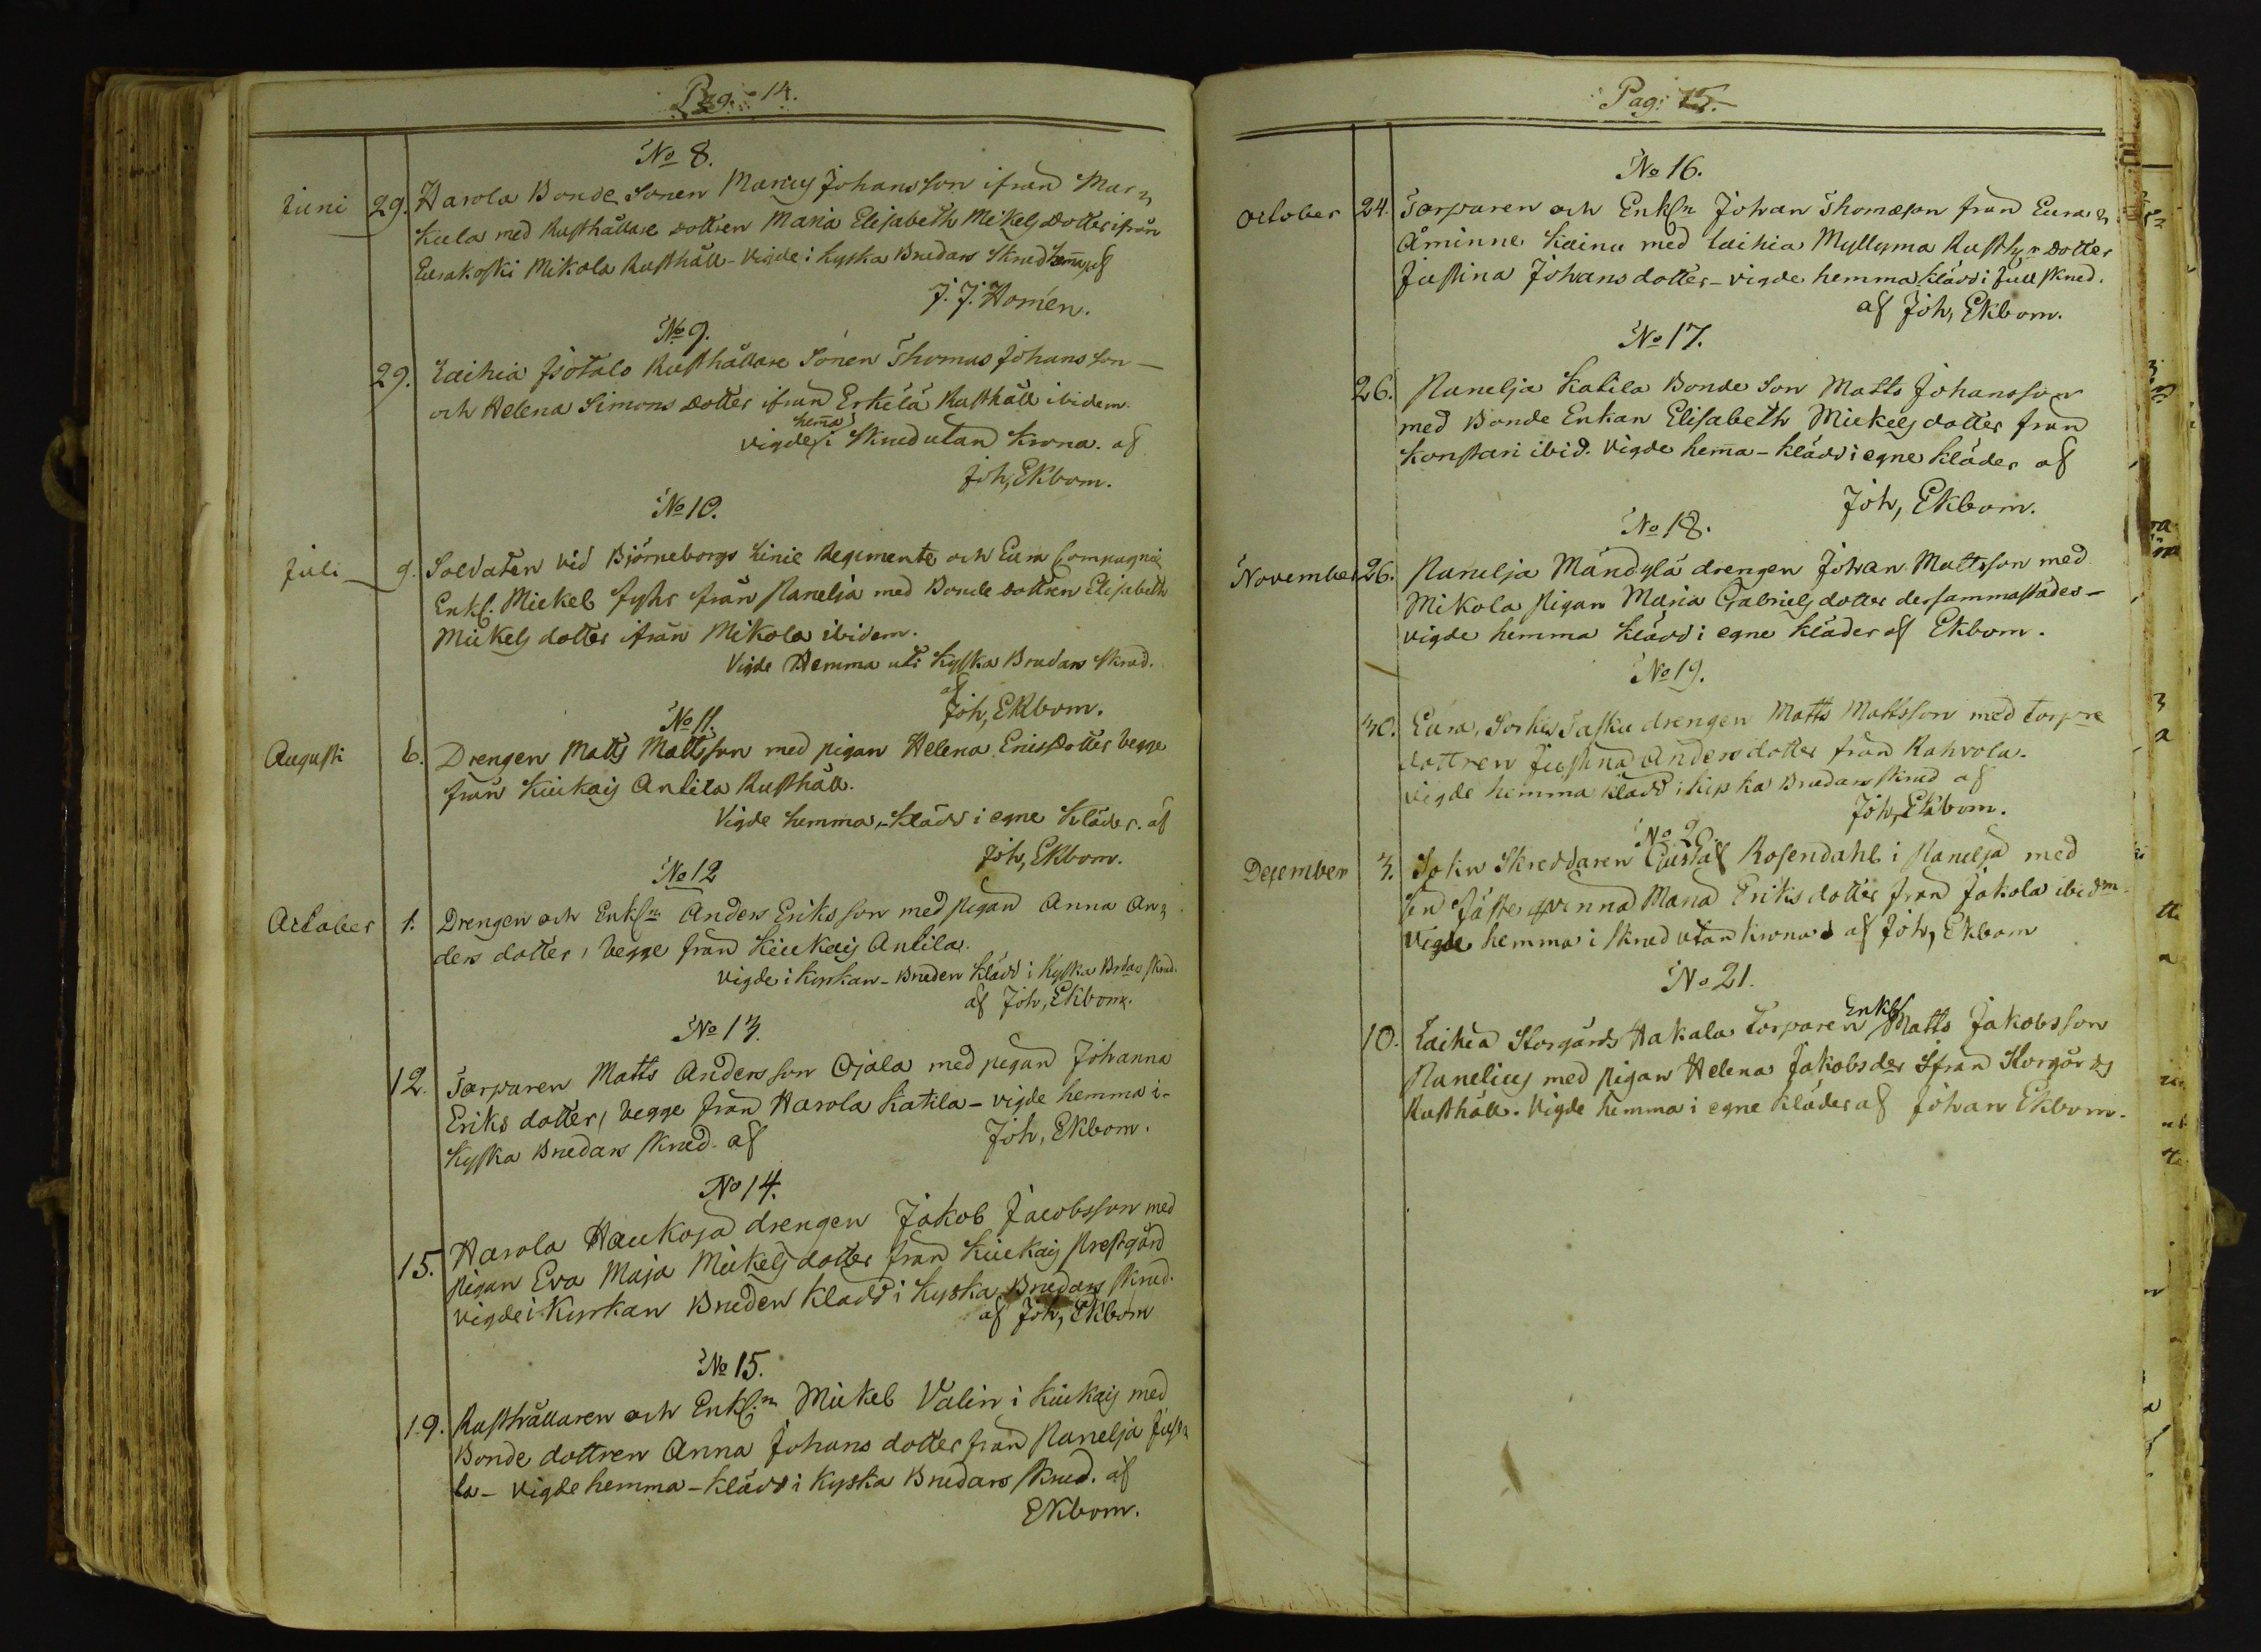 Pag. 14.
No 8.
Juni 29. Harola Bonde Sonen Marcus Johansson ifrån Mar=
kula med Rusthållare dottren Maria Elisabeth Mikelsdotter ifrån
Eurakoski Mikola Rusthåll - Vigde i kyska Brudars Skrud hem̄a af
J. J. Homén.
No 9.
29. Laihia Isotalo Rusthållare Sonen Thomas Johansson -
och Helena Simons dotter ifrån Erkilä Rusthåll ibidem.
hem̄a
vigde i Skrud utan krona. af
Joh, Ekbom.
No 10.
Juli 9. Soldaten vid Björneborgs Linie Regemente och Eura Compagnie
Enkl. Mickel Fyhr från Panelia med Bonde dottren Elisabeth
Mickels dotter ifrån Mikola ibidem.
Vigde Hemma uti Kyska Brudars skrud.
af
Joh, Ekbom.
No 11.
Augusti 6. Drengen Matts Mattsson med pigan Helena Ericsdotter begge
från Kiukais Antila Rusthåll.
Vigde hemma, - klädd i egne Kläder. af
Joh, Ekbom.
No 12
October 1. Drengen och Enkln Anders Eriksson med pigan Anna An=
ders dotter, begge från Kiukais Antila.
vigde i kyrkan - Bruden klädd i Kyska Brdars skrud.
af Joh, Ekbom.
No 13.
12. Torparen Matts Andersson Ojala med pigan Johanna
Eriks dotter, begge från Harola Katila - vigde hemma i -
Kyska Brudars skrud. af Joh, Ekbom.
No 14.
15. Harola Haukoja drengen Jakob Jacobsson med
pigan Eva Maja Mickels dotter från Kiukais Prestgård
vigde i Kyrkan Bruden klädd i Kyska Brudars skrud.
af Joh, Ekbom
No 15.
19. Rusthållaren och Enkl:n Mickel Valin i Kiukais med
Bonde dottren Anna Johans dotter från Panelia
la - vigde hemma - klädd i Kyska Brudars skrud. af
Ekbom.
Pag: 15.
No 16.
October 24. Torparen och Enkln Johan Thomasson från Eura=
Åminne Kainu med Laihia Myllymaa Rusthrdotter
Justina Johansdotter - vigde hemma klädd i full skrud.
af Joh, Ekbom.
No 17.
26. Panelja Katila Bonde Son Matts Johansson
med Bonde Enkan Elisabeth Mickels dotter från
Konstari ibid. Vigde hem̄a - klädd i egne kläder af
Joh, Ekbom.
No 18.
November 26. Panelja Mändylä drengen Johan Mattsson med
Mikola pigan Maria Gabriels dotter dersammastädes -
vigde hemma klädd i egne kläder af Ekbom.
No 19.
30. Eura, Sorkis Pasku drengen Matts Mattsson med torpre
dottren Justina Anders dotter från Kahvola.
vigde hemma klädd i kyska Brudars skrud af
Joh, Ekbom.
No 20.
December 3. Sokn Skreddaren Gustaf Rosendahl i Panelja med
sin Fästeqvinna Maria Eriks dotter från Jakola ibidm.
vigde hemma i Skrud utan krona af Joh, Ekbom
No 21.
Enkl
10. Laihia Storgårds Hakala Torparen Matts Jakobsson
Panelius med pigan Helena Jakobsder ifrån Storgårds
Rusthåll. Vigde hemma i egne kläder af Johan Ekbom.